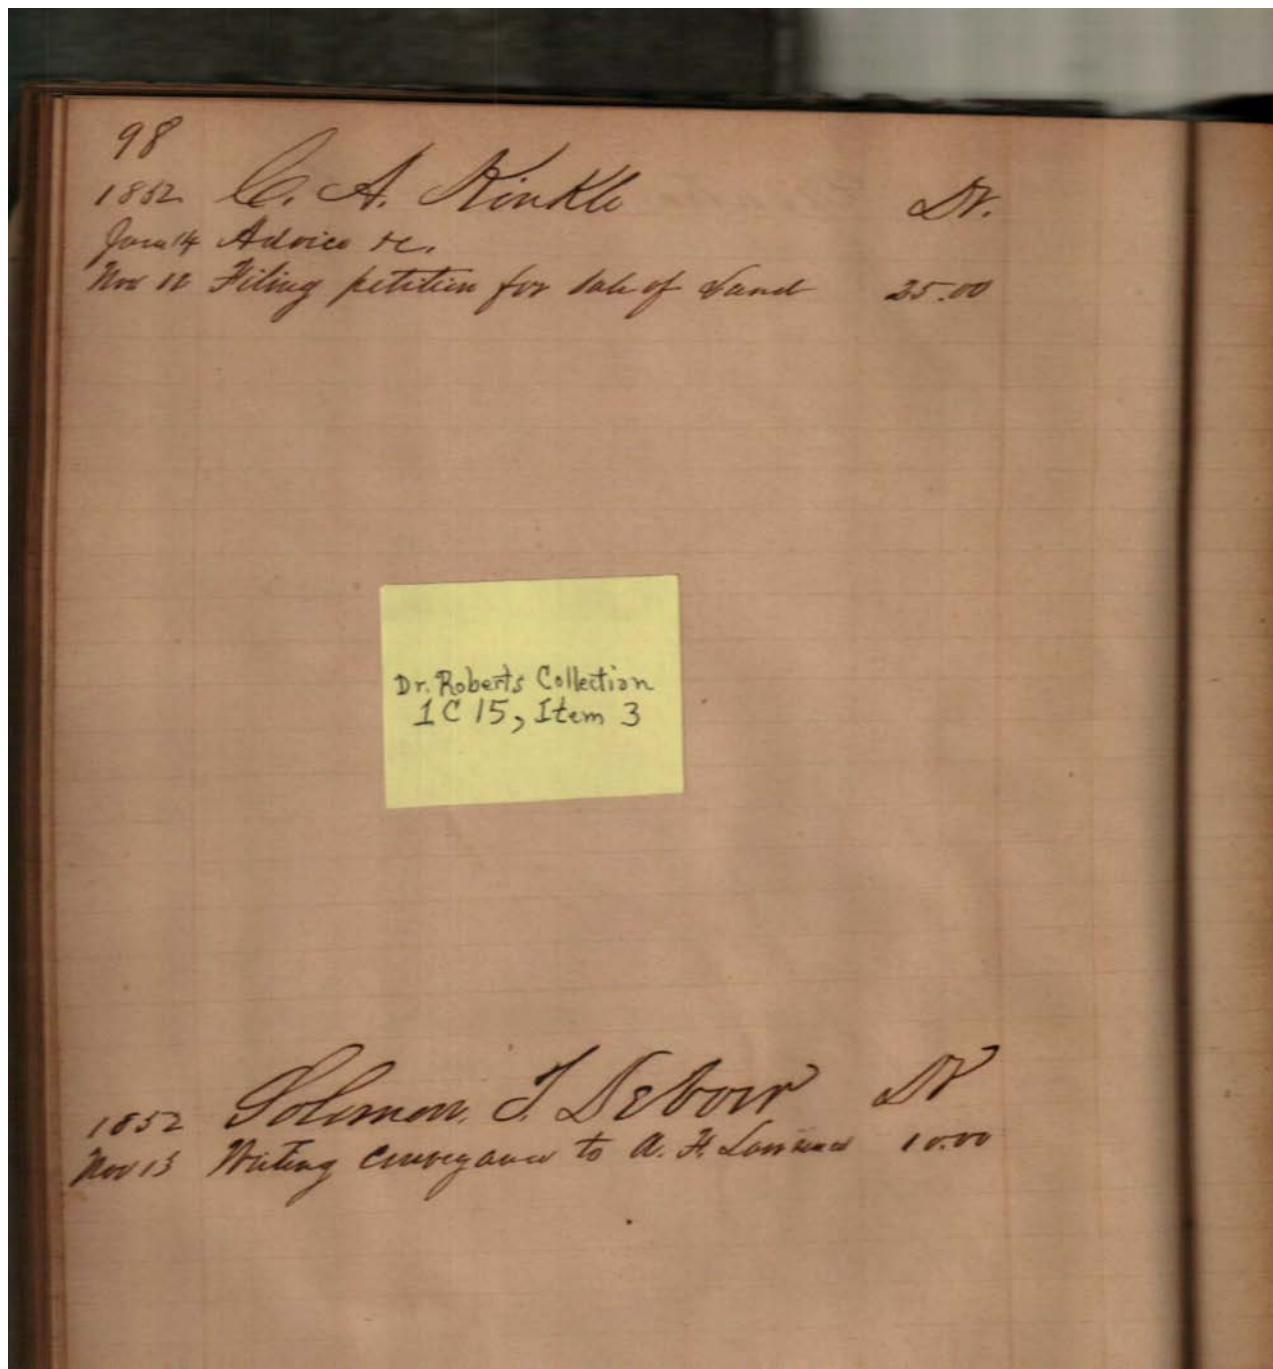 98
1852 C. A. Kinkle Dr.
Jany 14 Advice &c.
Nov 12 Filing petition for Sale of Land 25.00
Dr. Roberts Collection
1C15, Item 3
1852 Solomon. T. Deboir Dr
Nov 13 Writing conveyance to A. H. 10.00